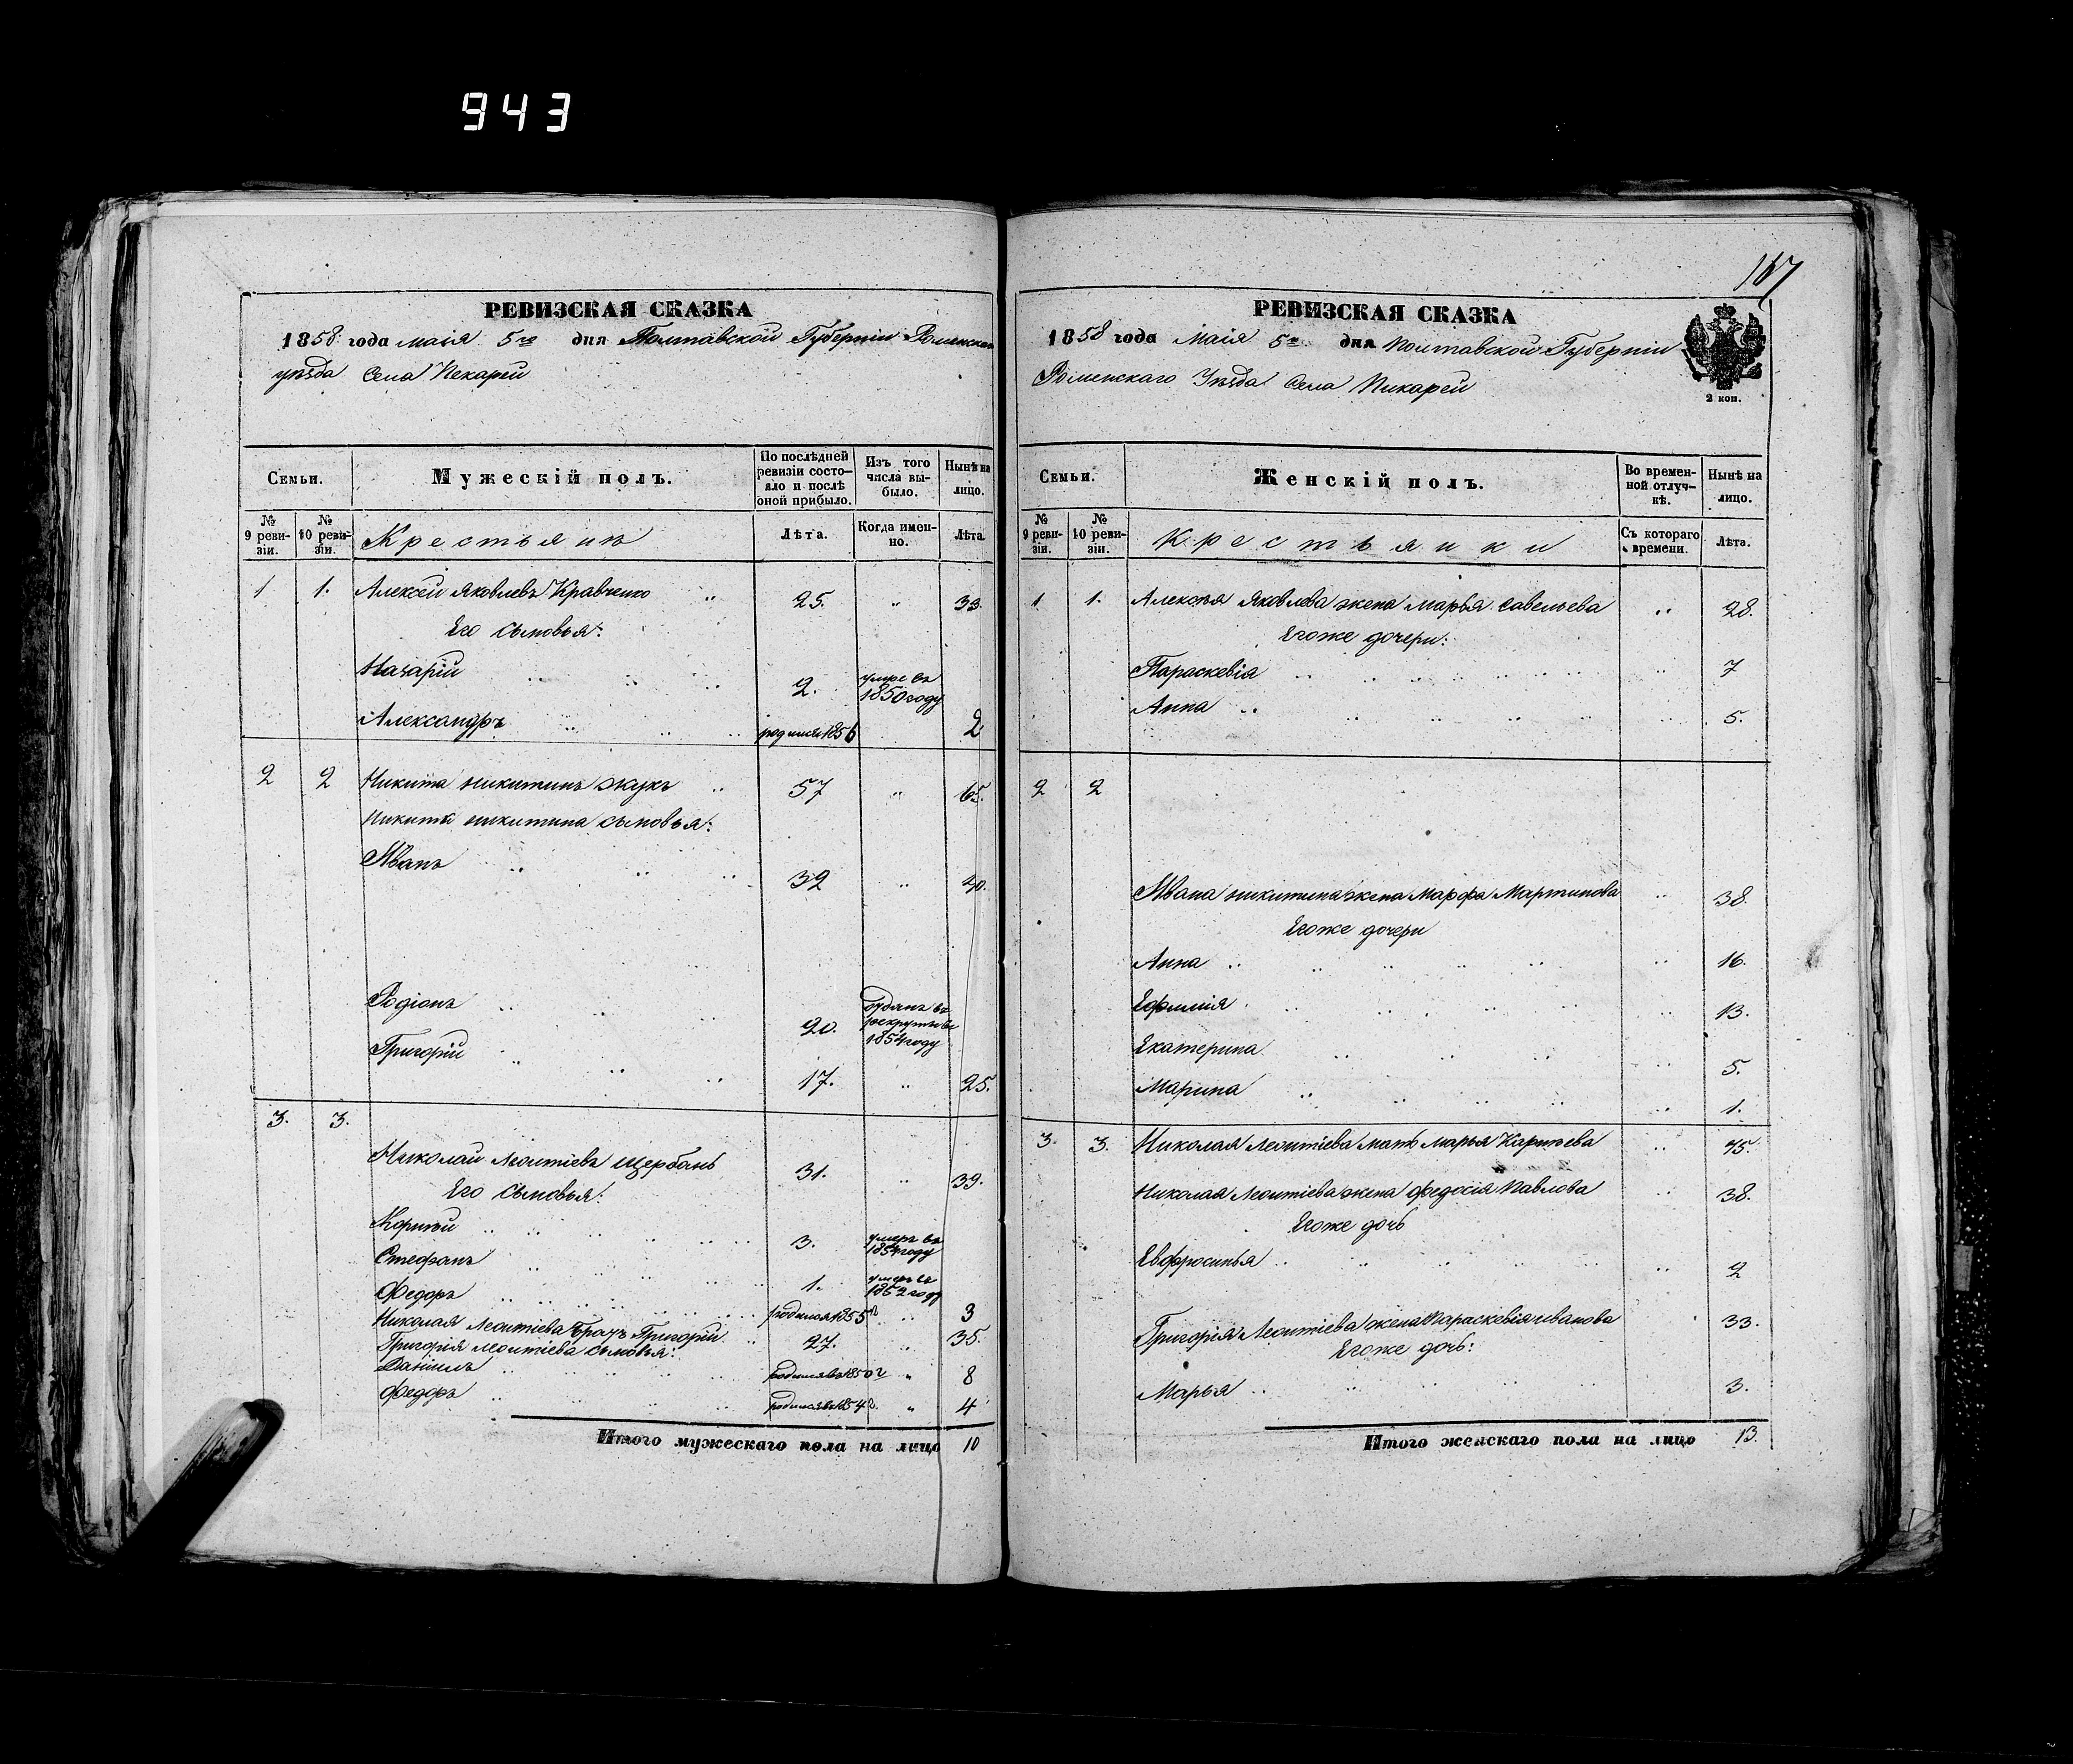 943
РЕВИЗСКАЯ СКАЗКА
1858 года маія 5го дня Полтавской Губерніи Роменскаго
уѣзда Села Пекарей
Семьи.
Мужескій полъ.
По послѣдней ревизіи состо-яло и послѣ оной прибыло.
Изъ того числа вы-было.
Нынѣ на лицо.
№ 9 реви-зіи.
№ 10 реви-зіи.
Крестьянъ
Лѣта.
Когда имен-но.
Лѣта
1 1. Алексѣй Яковлевъ Кравченко 25. " 33.
Его сыновья:
Назарій 2. умре въ 1850 году
Александръ родился 1856 2
2 2 Никита Никитинъ Жукъ 57 " 65.
Никиты Никитина сыновья:
Иванъ 32 " 40.
Родіонъ 20. отданъ въ рекруты въ 1854 году
Григорій 17. " 25.
3. 3.
Николай Леонтіевъ Щербань 31. " 39.
Его сыновья:
Корнѣй 3. умеръ въ 1854 году
Стефанъ 1. умеръ въ 1852 году
Федоръ родился 1855 г " 3
Николая Леонтіева братъ Григорій 27. " 35.
Григорія Леонтіева сыновья:
Даніилъ родился въ 1850 г " 8
Федоръ родился въ 1854 г. " 4
Итого мужескаго пола на лицо 10
167
РЕВИЗСКАЯ СКАЗКА
1858 года Маія 5го дня Полтавской Губерніи
Роменскаго Уѣзда Села Пикарей
2 коп.
Семьи.
Женскій полъ.
Во времен-ной отлуч-кѣ.
Нынѣ на лицо.
№ 9 реви-зіи.
№ 10 реви-зіи.
Крестьянки
Съ котораго времени.
Лѣта.
1 1. Алексѣя Яковлева жена Марья Савельева " 28.
Егоже дочери:
Параскевія 7
Анна 5.
2 2
Ивана Никитина жена Марфа Мартинова 38.
Егоже дочери
Анна 16.
Ефимія 13.
Екатерина 5.
Марина 1.
3. 3. Николая Леонтіева мать Марья Карпѣева 75.
Николая Леонтіева жена Федосія Павлова 38.
Егоже дочь
Евфросинья 2
Григорія Леонтіева жена Параскевія Иванова 33.
Егоже дочь:
Марья 3.
Итого женскаго пола на лицо 13.